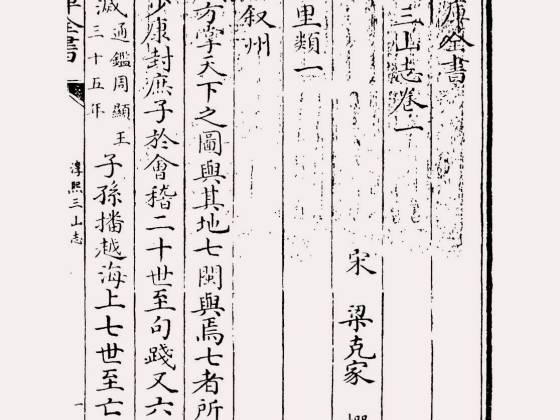 庫全書
三山志卷一
宋 梁克家
里類一
叙州
方掌天下之圖與其地七閩與焉七者所
少康封庶子於會稽二十世至句踐又六
滅
通鑑周顯王
三十五年
子孫播越海上七世至亡
全書
淳熙三山志